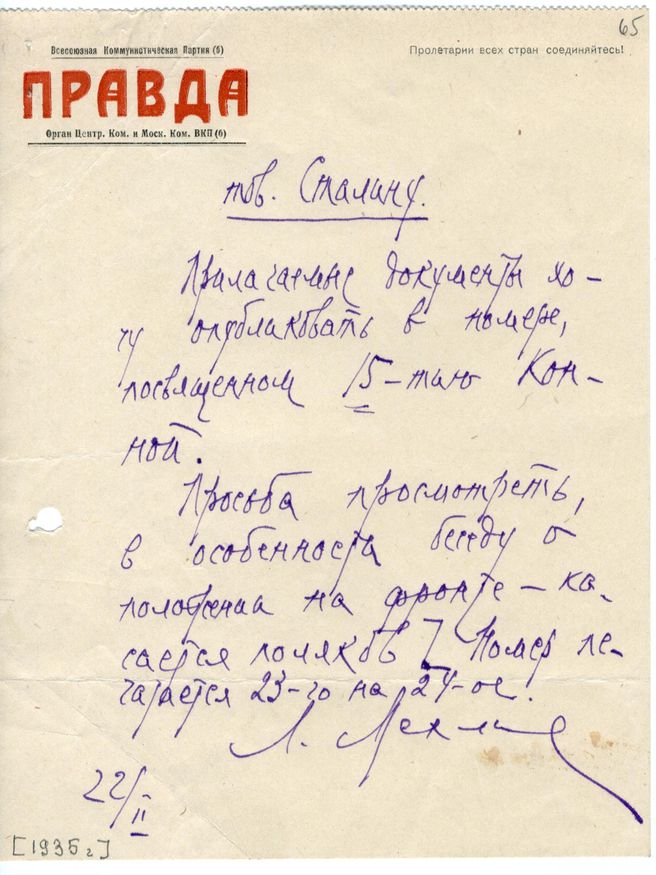 65
Всесоюзная Коммунистическая Партия (б)
Пролетарии всех стран соединяйтесь!
ПРАВДА
Орган Центр. Ком. и Моск. Ком. ВКП(б)
тов. Сталину.
Прилагаемые документы хо-
чу опубликовать в номере,
посвященном 15-тию Кон-
ной.
Просьба просмотреть,
в особенности беседу о
положении на фронте – ка-
сается поляков. Номер пе-
чатается 23-го на 24-ое.
Л. Мехлис
22/II
[1935 г]